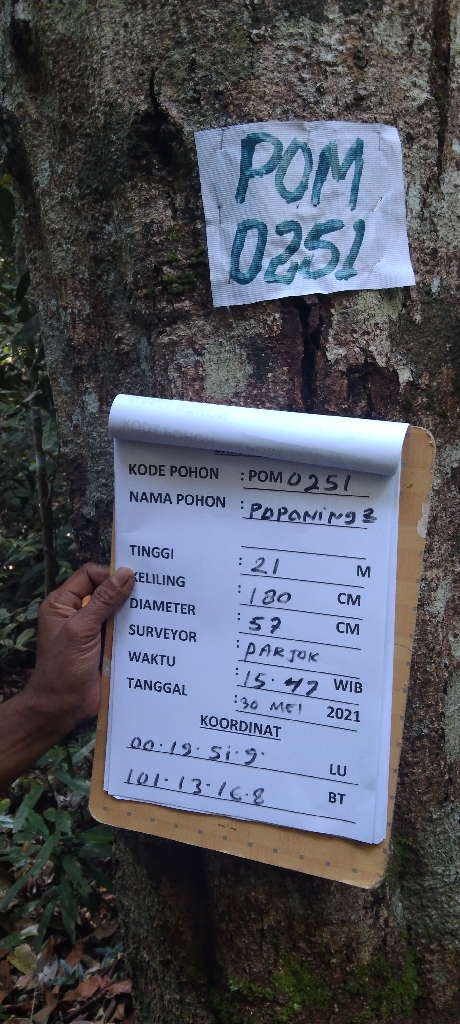 POM
0251
KODE POHON : POM 0251
NAMA POHON : POPONING2
TINGGI : 21 M
KELILING : 180 CM
DIAMETER : 57 CM
SURVEYOR : PARJOK
WAKTU : 15.47 WIB
TANGGAL : 30 MEI 2021
KOORDINAT
00.19.51.9. LU
101.13.16.8 BT